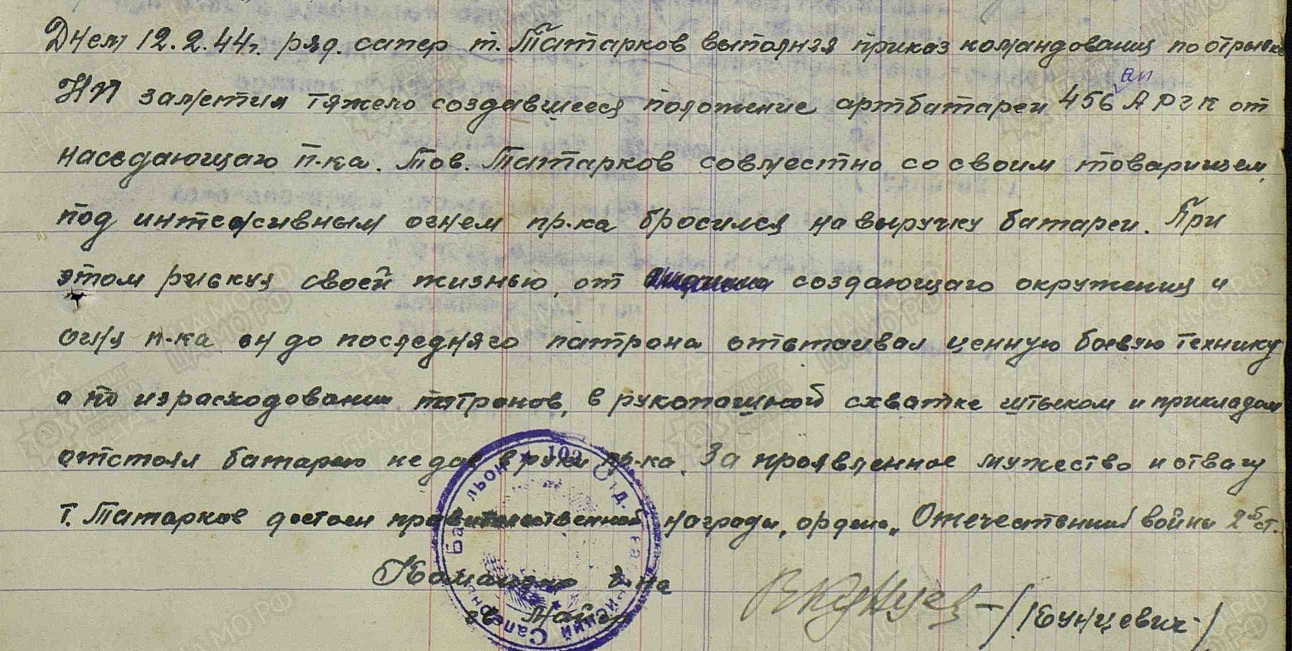 Днем 12.2.44г. ряд. сапер т. Татарков выполняя приказ командования по отрывке
НП заметил тяжело создавшееся положение артбатареи 456 АП РГК от
наседающаго п-ка. Тов. Татарков совместно со своим товарищем,
под интенсивным огнем пр-ка бросился на выручку батареи. При
этом рискуя своей жизнью, от создающаго окружения и
огня п-ка он до последняго патрона отстаивал ценную боевую технику
а по израсходовании патронов, в рукопашной схватке штыком и прикладом
отстоял батарею не дав в руки пр-ка. За проявленное мужество и отвагу
т. Татарков достоен правительственной награды, ордена „Отечественной войны 2й ст.
Командир б-на
гв. майор /Кунцевич/
102 Отд. Гвардейский Саперный Батальон